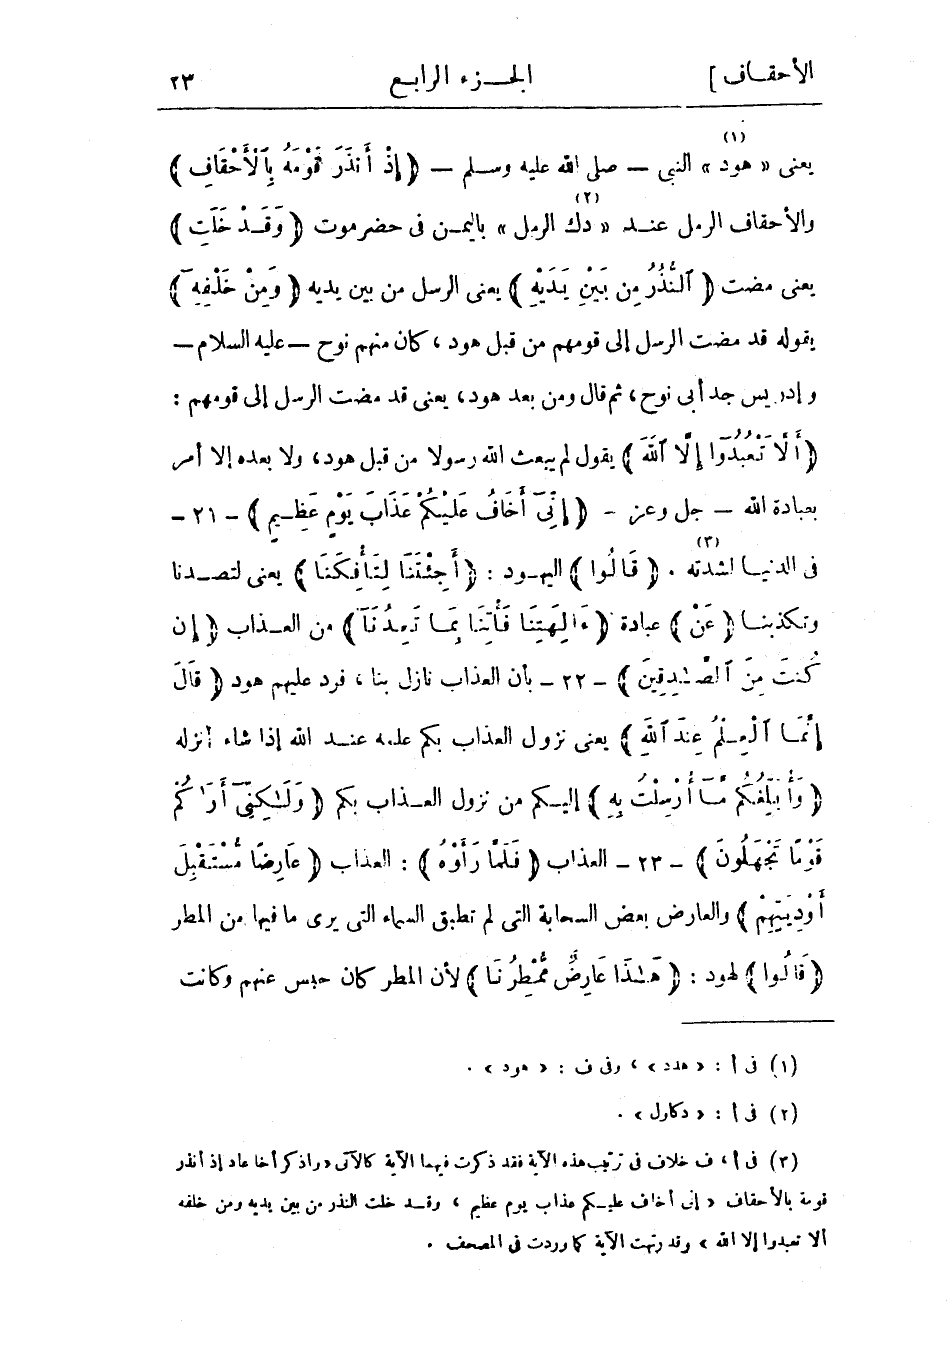 الأحقاف] الجــزء الرابع ٢٣
يعنى « هود »(١) النبى — صلى الله عليه وســلم — ﴿ إِذْ أَنذَرَ قَوْمَهُ بِٱلْأَحْقَافِ ﴾
والأحقاف الرمل عنـد « دك الرمل »(٢) باليمـن فى حضرموت ﴿ وَقَـدْ خَلَتِ ﴾
يعنى مضت ﴿ ٱلنُّذُرُ مِن بَيْنِ يَدَيْهِ ﴾ يعنى الرسل من بين يديه ﴿ وَمِنْ خَلْفِهِ ﴾
يقوله قد مضت الرسل إلى قومهم من قبل هود ، كان منهم نوح — عليه السلام —
وإدريس جد أبى نوح ، ثم قال ومن بعد هود ، يعنى قد مضت الرسل إلى قومهم :
﴿ أَلَّا تَعْبُدُوٓا إِلَّا ٱللَّهَ ﴾ يقول لم يبعث الله رسولا من قبل هود ، ولا بعده إلا أمر
بعبادة الله — جل وعز — ﴿ إِنِّىٓ أَخَافُ عَلَيْكُمْ عَذَابَ يَوْمٍ عَظِـيمٍ ﴾ — ٢١ —
فى الدنيــا لشدته .(٣) ﴿ قَالُوا ﴾ اليهـود : ﴿ أَجِئْتَنَا لِتَأْفِكَنَا ﴾ يعنى لتصــدنا
وتكذبنــا ﴿ عَنْ ﴾ عبادة ﴿ ءَالِهَتِنَا فَأْتِنَا بِمَـا تَعِدُنَآ ﴾ من العـذاب ﴿ إِن
كُنتَ مِنَ ٱلصَّـٰدِقِينَ ﴾ — ٢٢ — بأن العذاب نازل بنا ، فرد عليهم هود ﴿ قَالَ
إِنَّمَـا ٱلْعِـلْمُ عِندَ ٱللَّهِ ﴾ يعنى نزول العذاب بكم علمه عنــد الله إذا شاء أنزله
﴿ وَأُبَلِّغُكُم مَّـآ أُرْسِلْتُ بِهِ ﴾ إليـكم من نزول العـذاب بكم ﴿ وَلَـٰكِنِّىٓ أَرَىٰكُمْ
قَوْمًا تَجْهَلُونَ ﴾ — ٢٣ — العذاب ﴿ فَلَمَّا رَأَوْهُ ﴾ : العذاب ﴿ عَارِضًا مُّسْتَقْبِلَ
أَوْدِيَتِهِمْ ﴾ والعارض بعض السحابة التى لم تطبق السماء التى يرى ما فيها من المطر
﴿ قَالُوا ﴾ لهود : ﴿ هَـٰذَا عَارِضٌ مُّمْطِرُنَا ﴾ لأن المطر كان حبس عنهم وكانت
(١) فى أ : « هدد » ، وفى ف : « هود » .
(٢) فى أ : « دكاول » .
(٣) فى أ ، ف خلاف فى ترتيب هذه الآية فقد ذكرت فيهما الآية كالآتى « واذكر أخا عاد إذ أنذر
قومة بالأحقاف « إنى أخاف عليـكم عذاب يوم عظيم ، وقــد خلت النذر من بين يديه ومن خلفه
ألا تعبدوا إلا الله » وقد رتبت الآية كما وردت فى المصحف .